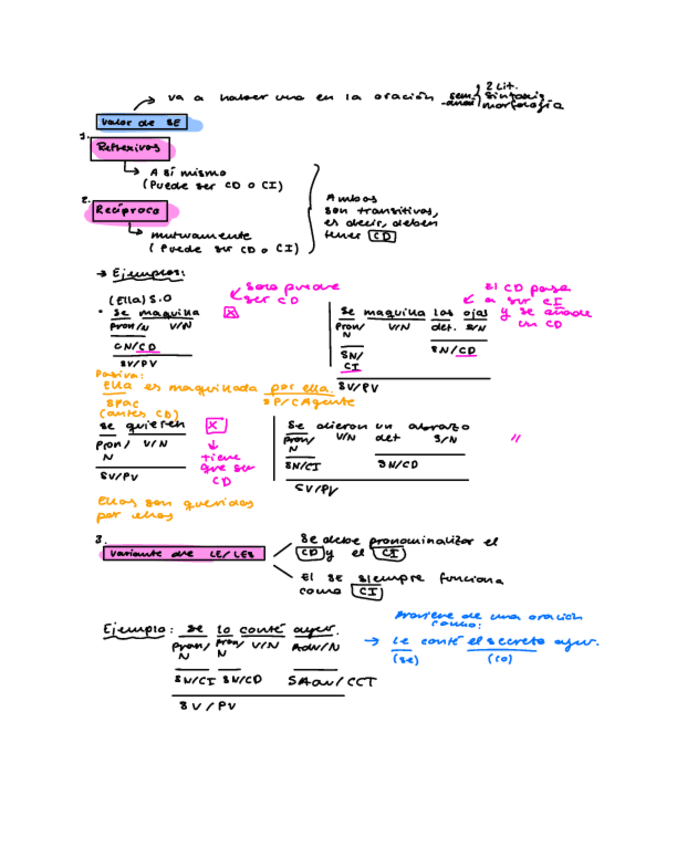 va a haber una en la oración
2 Lit.
Sintaxis
morfología
Valor de SE
1.
Reflexivos
A sí mismo
(Puede ser CD o CI)
2.
Recíproco
mutuamente
(Puede ser CD o CI)
Ambos
son transitivos,
es decir, deben
tener CD
→ Ejemplos:
Solo puede
ser CD
El CD pasa
a ser CI
y se añade
un CD
(Ella) S.O
• Se maquilla
Pron/N V/N
SN/CD
SV/PV
Se maquilla los ojos
Pron/ V/N det. S/N
N
SN/ SN/CD
CI
SV/PV
Pasiva:
Ella es maquillada por ella.
SPac SP/CAgente
(antes CD)
Se quieren X
Pron/ V/N
N
SV/PV
↓
tiene
que ser
CD
Se dieron un abrazo
Pron/ V/N det S/N
N
SN/CI SN/CD
SV/PV
"
Ellas son queridas
por ellos
3.
Variante de LE/LES
Se debe pronominalizar el
CD y el CI
El SE siempre funciona
como CI
Ejemplo: Se lo conté ayer.
Pron/ Pron/ V/N Adv/N
N N
SN/CI SN/CD SAdv/CCT
SV/PV
Proviene de una oración
como:
→ Le conté el secreto ayer.
(se) (lo)